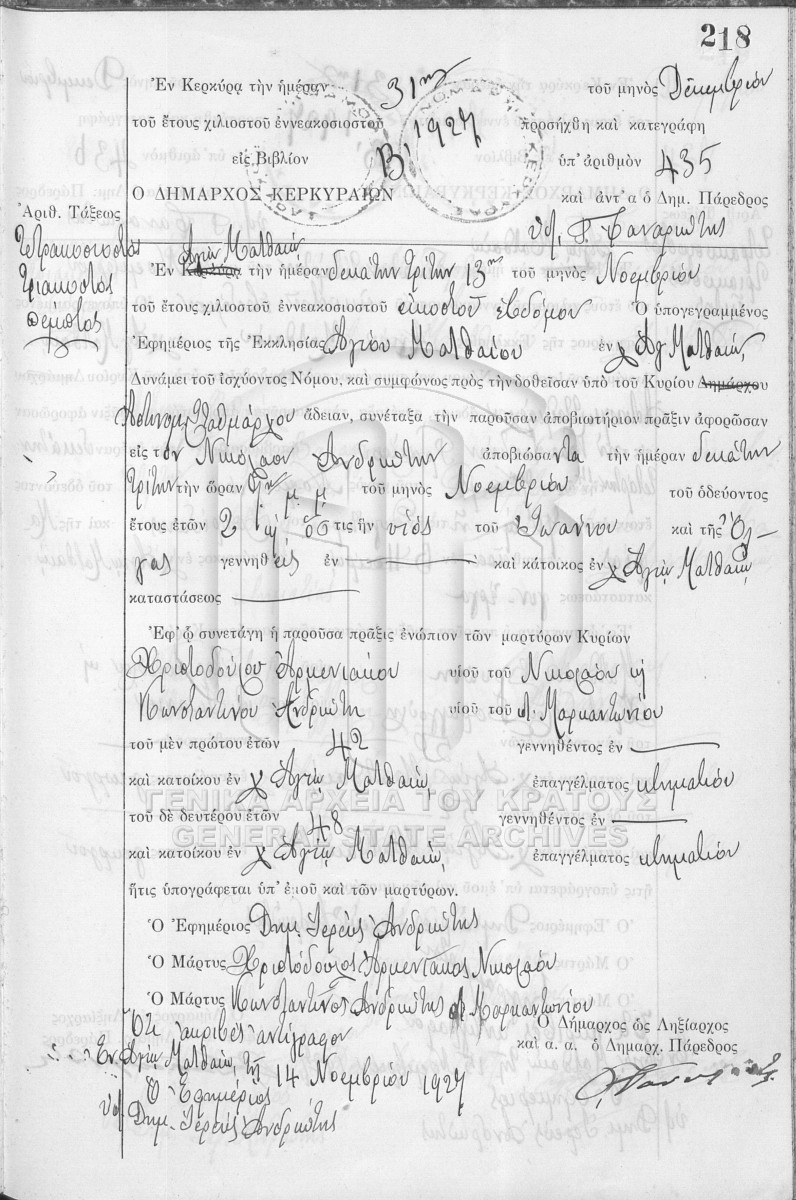 218
Ἐν Κερκύρᾳ τὴν ἡμέραν 31ην τοῦ μηνὸς Δεκεμβρίου
τοῦ ἔτους χιλιοστοῦ ἐννεακοσιοστοῦ 1927 προσήχθη καὶ κατεγράφη
εἰς Βιβλίον Β' ὑπ' ἀριθμὸν 435
Ο ΔΗΜΑΡΧΟΣ ΚΕΡΚΥΡΑΙΩΝ καὶ ἀντ' α ὁ Δημ. Πάρεδρος
Ἀριθ. Τάξεως
Τετρακοσιοστὸς
τριακοστὸς
πέμπτος
Ἁγίῳ Ματθαίῳ
Ἐν Κερκύρᾳ τὴν ἡμέραν δεκάτην τρίτην 13ην τοῦ μηνὸς Νοεμβρίου
τοῦ ἔτους χιλιοστοῦ ἐννεακοσιοστοῦ εἰκοστοῦ ἑβδόμου Ὁ ὑπογεγραμμένος
Ἐφημέριος τῆς Ἐκκλησίας Ἁγίου Ματθαίου ἐν χ. Ἁγ. Ματθαίῳ
Δυνάμει τοῦ ἰσχύοντος Νόμου, καὶ συμφώνως πρὸς τὴν δοθεῖσαν ὑπὸ τοῦ Κυρίου Δημάρχου
Ἀστυνομ. Σταθμάρχου ἄδειαν, συνέταξα τὴν παροῦσαν ἀποβιωτήριον πρᾶξιν ἀφορῶσαν
εἰς τὸν Νικόλαον Ἀνδριώτην ἀποβιώσαντα τὴν ἡμέραν δεκάτην
τρίτην τὴν ὥραν μ. μ. τοῦ μηνὸς Νοεμβρίου τοῦ ὁδεύοντος
ἔτους ἐτῶν 2 ὅστις ἦν υἱὸς τοῦ Ἰωάννου καὶ τῆς Ὄλ-
γας γεννηθεὶς ἐν — καὶ κάτοικος ἐν χ. Ἁγίῳ Ματθαίῳ
καταστάσεως —
Ἐφ' ᾧ συνετάγη ἡ παροῦσα πρᾶξις ἐνώπιον τῶν μαρτύρων Κυρίων
Χριστοδούλου Ἀρμενιάκου υἱοῦ τοῦ Νικολάου καὶ
Κωνσταντίνου Ἀνδριώτη υἱοῦ τοῦ Μαρκαντωνίου
τοῦ μὲν πρώτου ἐτῶν 42 γεννηθέντος ἐν —
καὶ κατοίκου ἐν χ. Ἁγίῳ Ματθαίῳ, ἐπαγγέλματος κτηματίου
ΓΕΝΙΚΑ ΑΡΧΕΙΑ ΤΟΥ ΚΡΑΤΟΥΣ
τοῦ δὲ δευτέρου ἐτῶν 48 γεννηθέντος ἐν —
GENERAL STATE ARCHIVES
καὶ κατοίκου ἐν χ. Ἁγίῳ Ματθαίῳ, ἐπαγγέλματος κτηματίου
ἥτις ὑπογράφεται ὑπ' ἐμοῦ καὶ τῶν μαρτύρων.
Ὁ Ἐφημέριος Δημ. Ἱερεὺς Ἀνδριώτης
Ὁ Μάρτυς Χριστόδουλος Ἀρμενιάκος Νικολάου
Ὁ Μάρτυς Κωνσταντῖνος Ἀνδριώτης Μαρκαντωνίου
Ὅτι ἀκριβὲς ἀντίγραφον
Ὁ Δήμαρχος ὡς Ληξίαρχος
καὶ α. α. ὁ Δημαρχ. Πάρεδρος
Ἐν Ἁγίῳ Ματθαίῳ τῇ 14 Νοεμβρίου 1927
Ὁ Ἐφημέριος
Δημ. Ἱερεὺς Ἀνδριώτης